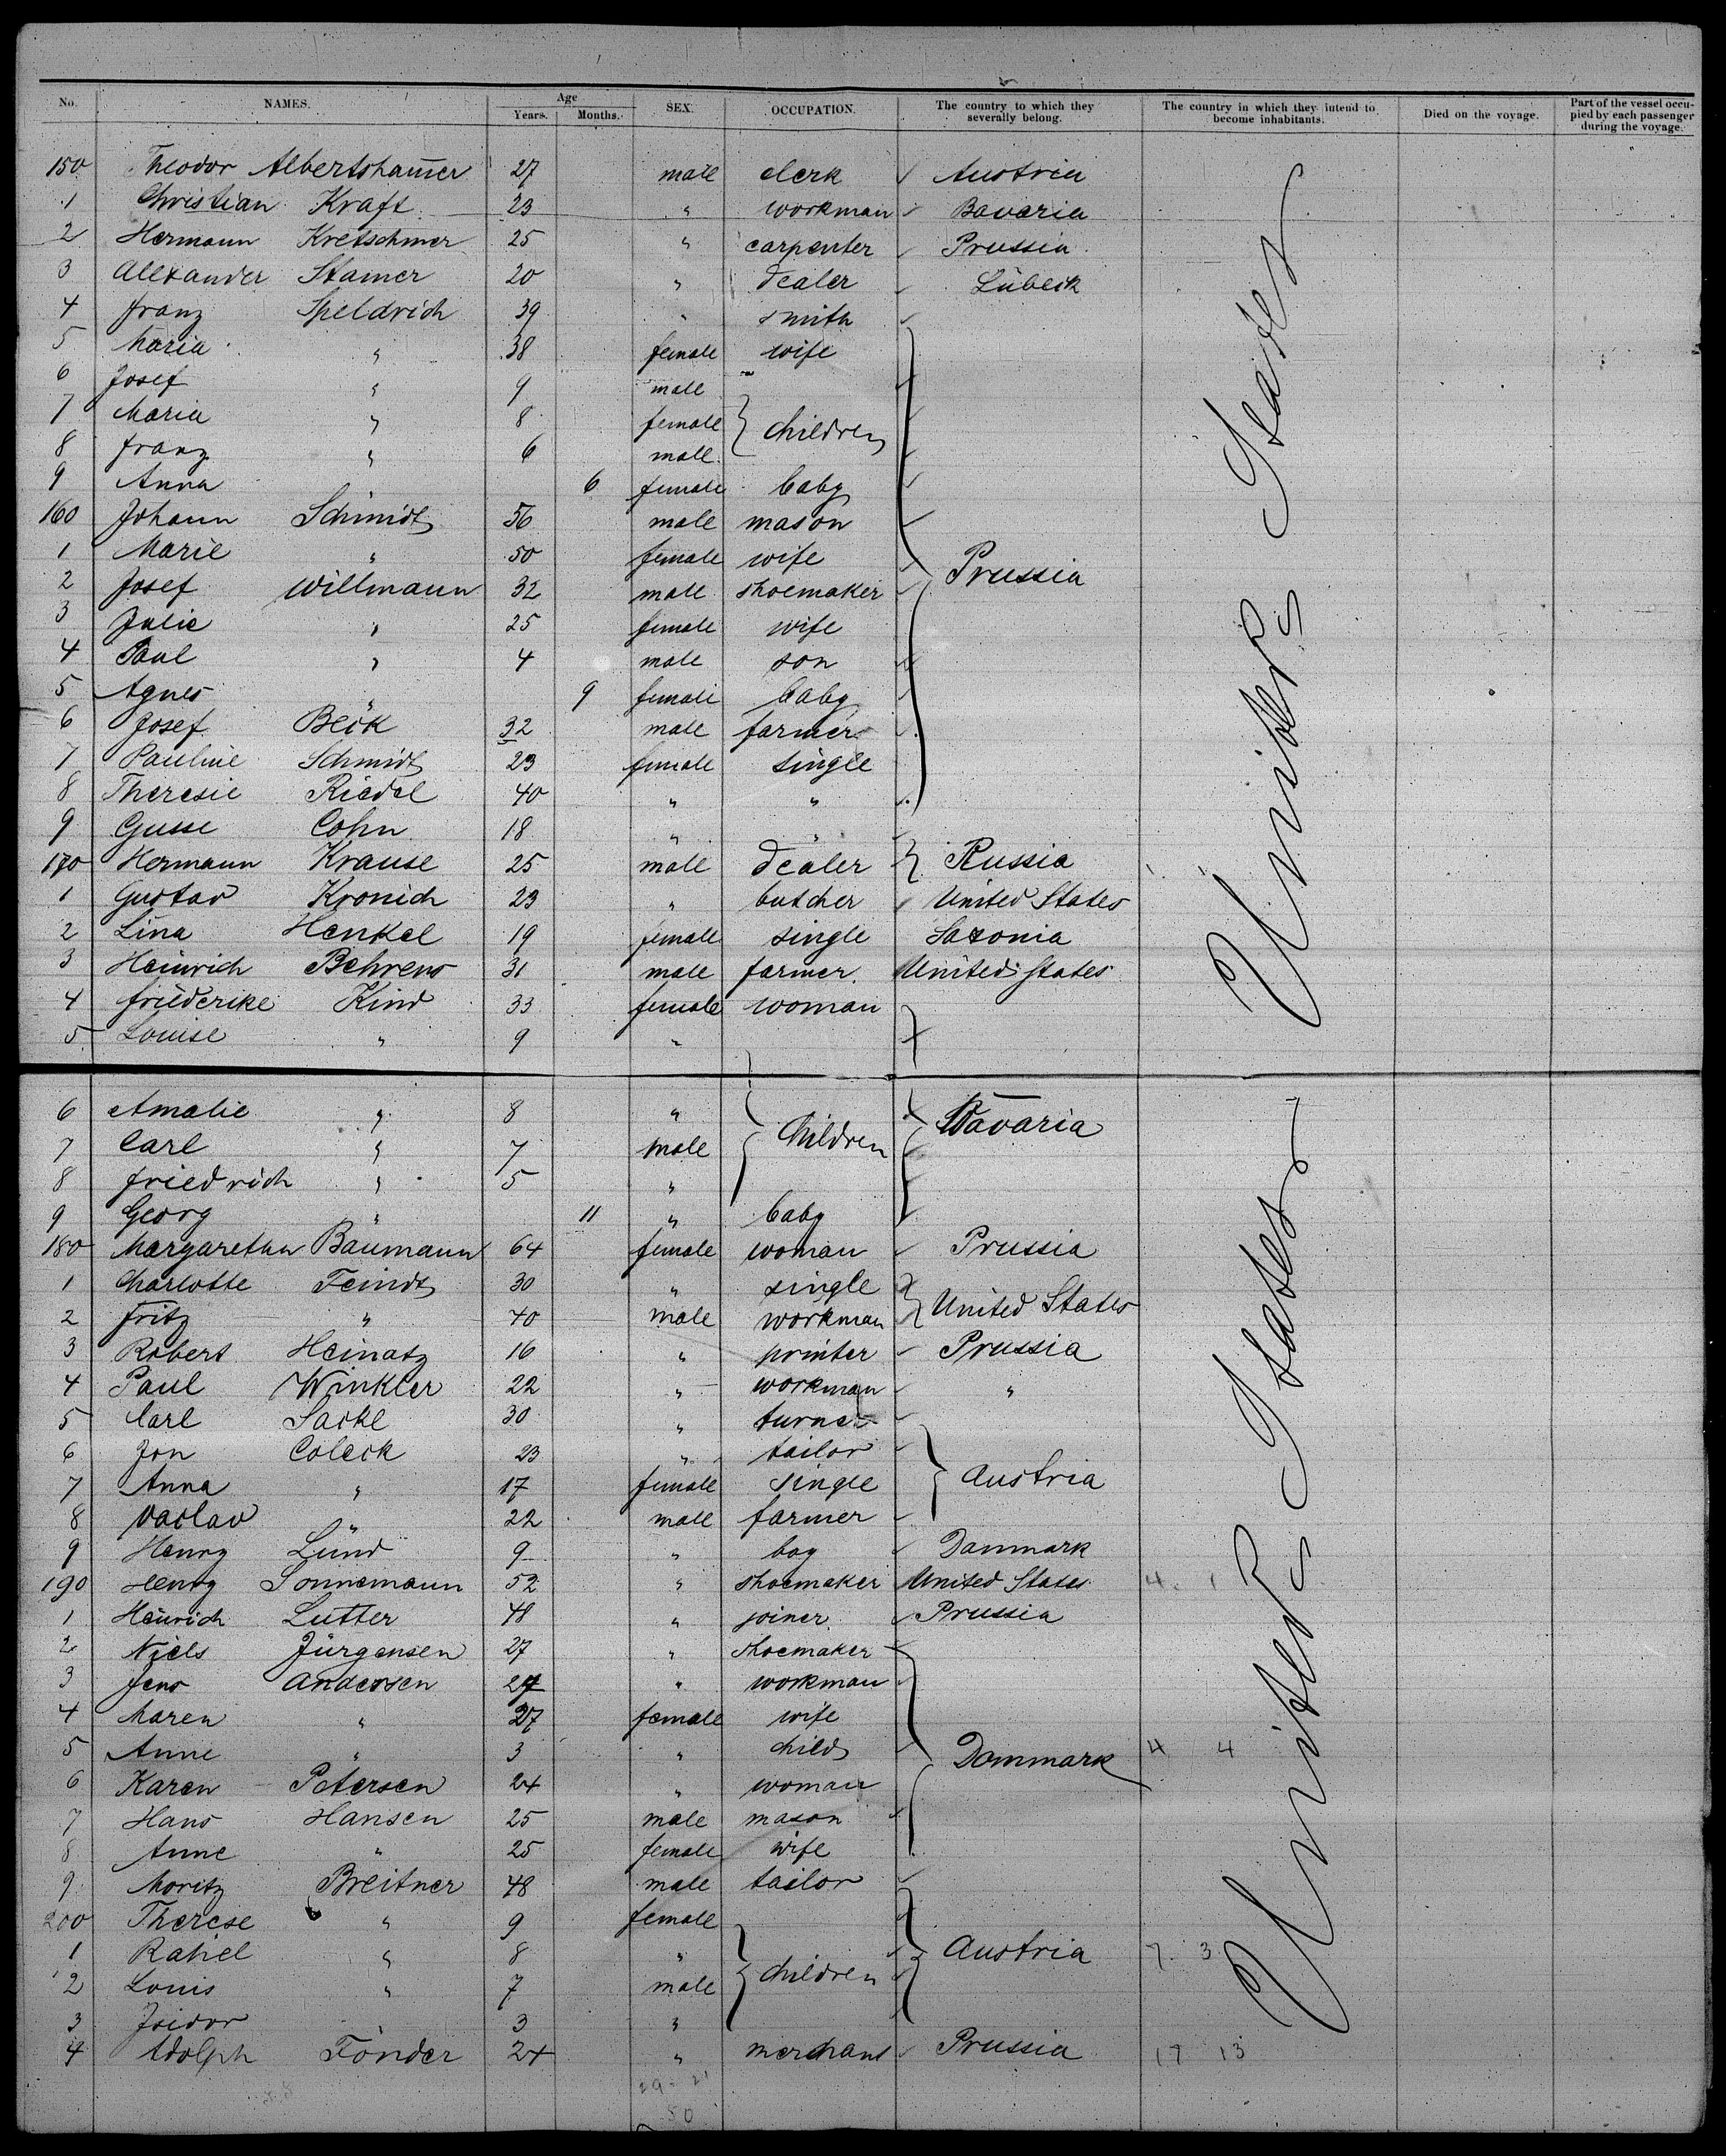 No. NAMES. Age Years. Months. SEX. OCCUPATION. The country to which they severally belong. The country in which they intend to become inhabitants. Died on the voyage. Part of the vessel occupied by each passenger during the voyage.
150 Theodor Albertsham̅er 27 male clerk Austria
1 Christian Kraft 23 " workman Bavaria
2 Hermann Kretschmer 25 " carpenter Prussia
3 Alexander Stamer 20 " dealer Lübeck
4 Franz Speldrich 39 " smith
5 Maria " 38 female wife
6 Josef " 9 male
7 Maria " 8 female children
8 Franz " 6 male
9 Anna " 6 female baby
160 Johann Schmidt 56 male mason
1 Marie " 50 female wife Prussia
2 Josef Willmann 32 male shoemaker
3 Julie " 25 female wife
4 Paul " 4 male son
5 Agnes " 9 female baby
6 Josef Beck 32 male farmer
7 Pauline Schmidt 23 female single
8 Theresie Riedel 40 " "
9 Gusse Cohn 18 " "
170 Hermann Krause 25 male dealer Russia
1 Gustav Kronich 23 " butcher United States
2 Lina Henkel 19 female single Saxonia
3 Heinrich Behrens 31 male farmer United States
4 Friederike Kind 33 female woman
5 Louise " 9 "
6 Amalie " 8 " Bavaria
7 Carl " 7 male children
8 Friedrich " 5 "
9 Georg " 11 " baby
180 Margaretha Baumann 64 female woman Prussia
1 Charlotte Feindt 30 " single
2 Fritz " 40 male workman United States
3 Robert Heinatz 16 " printer Prussia
4 Paul Winkler 22 " workman "
5 Carl Sackl 30 " turner
6 Jon Coleck 23 " tailor
7 Anna " 17 female single Austria
8 Vaclav " 22 male farmer
9 Henry Lund 9 " boy Danmark
190 Henry Sonnemann 52 " shoemaker United States 4 1
1 Heinrich Lutter 48 " joiner Prussia
2 Niels Jürgensen 27 " shoemaker
3 Jens Andersen 27 " workman
4 Maren " 27 female wife
5 Anne " 3 " child Dammark 4 4
6 Karen Petersen 24 " woman
7 Hans Hansen 25 male mason
8 Anne " 25 female wife
9 Moritz Breitner 48 male tailor
200 Therese " 9 female
1 Rahel " 8 " Austria 7 3
2 Louis " 7 male children
3 Isidor " 3 "
4 Adolph Fonder 24 " merchant Prussia 17 13
29 - 21
50
United States
United States